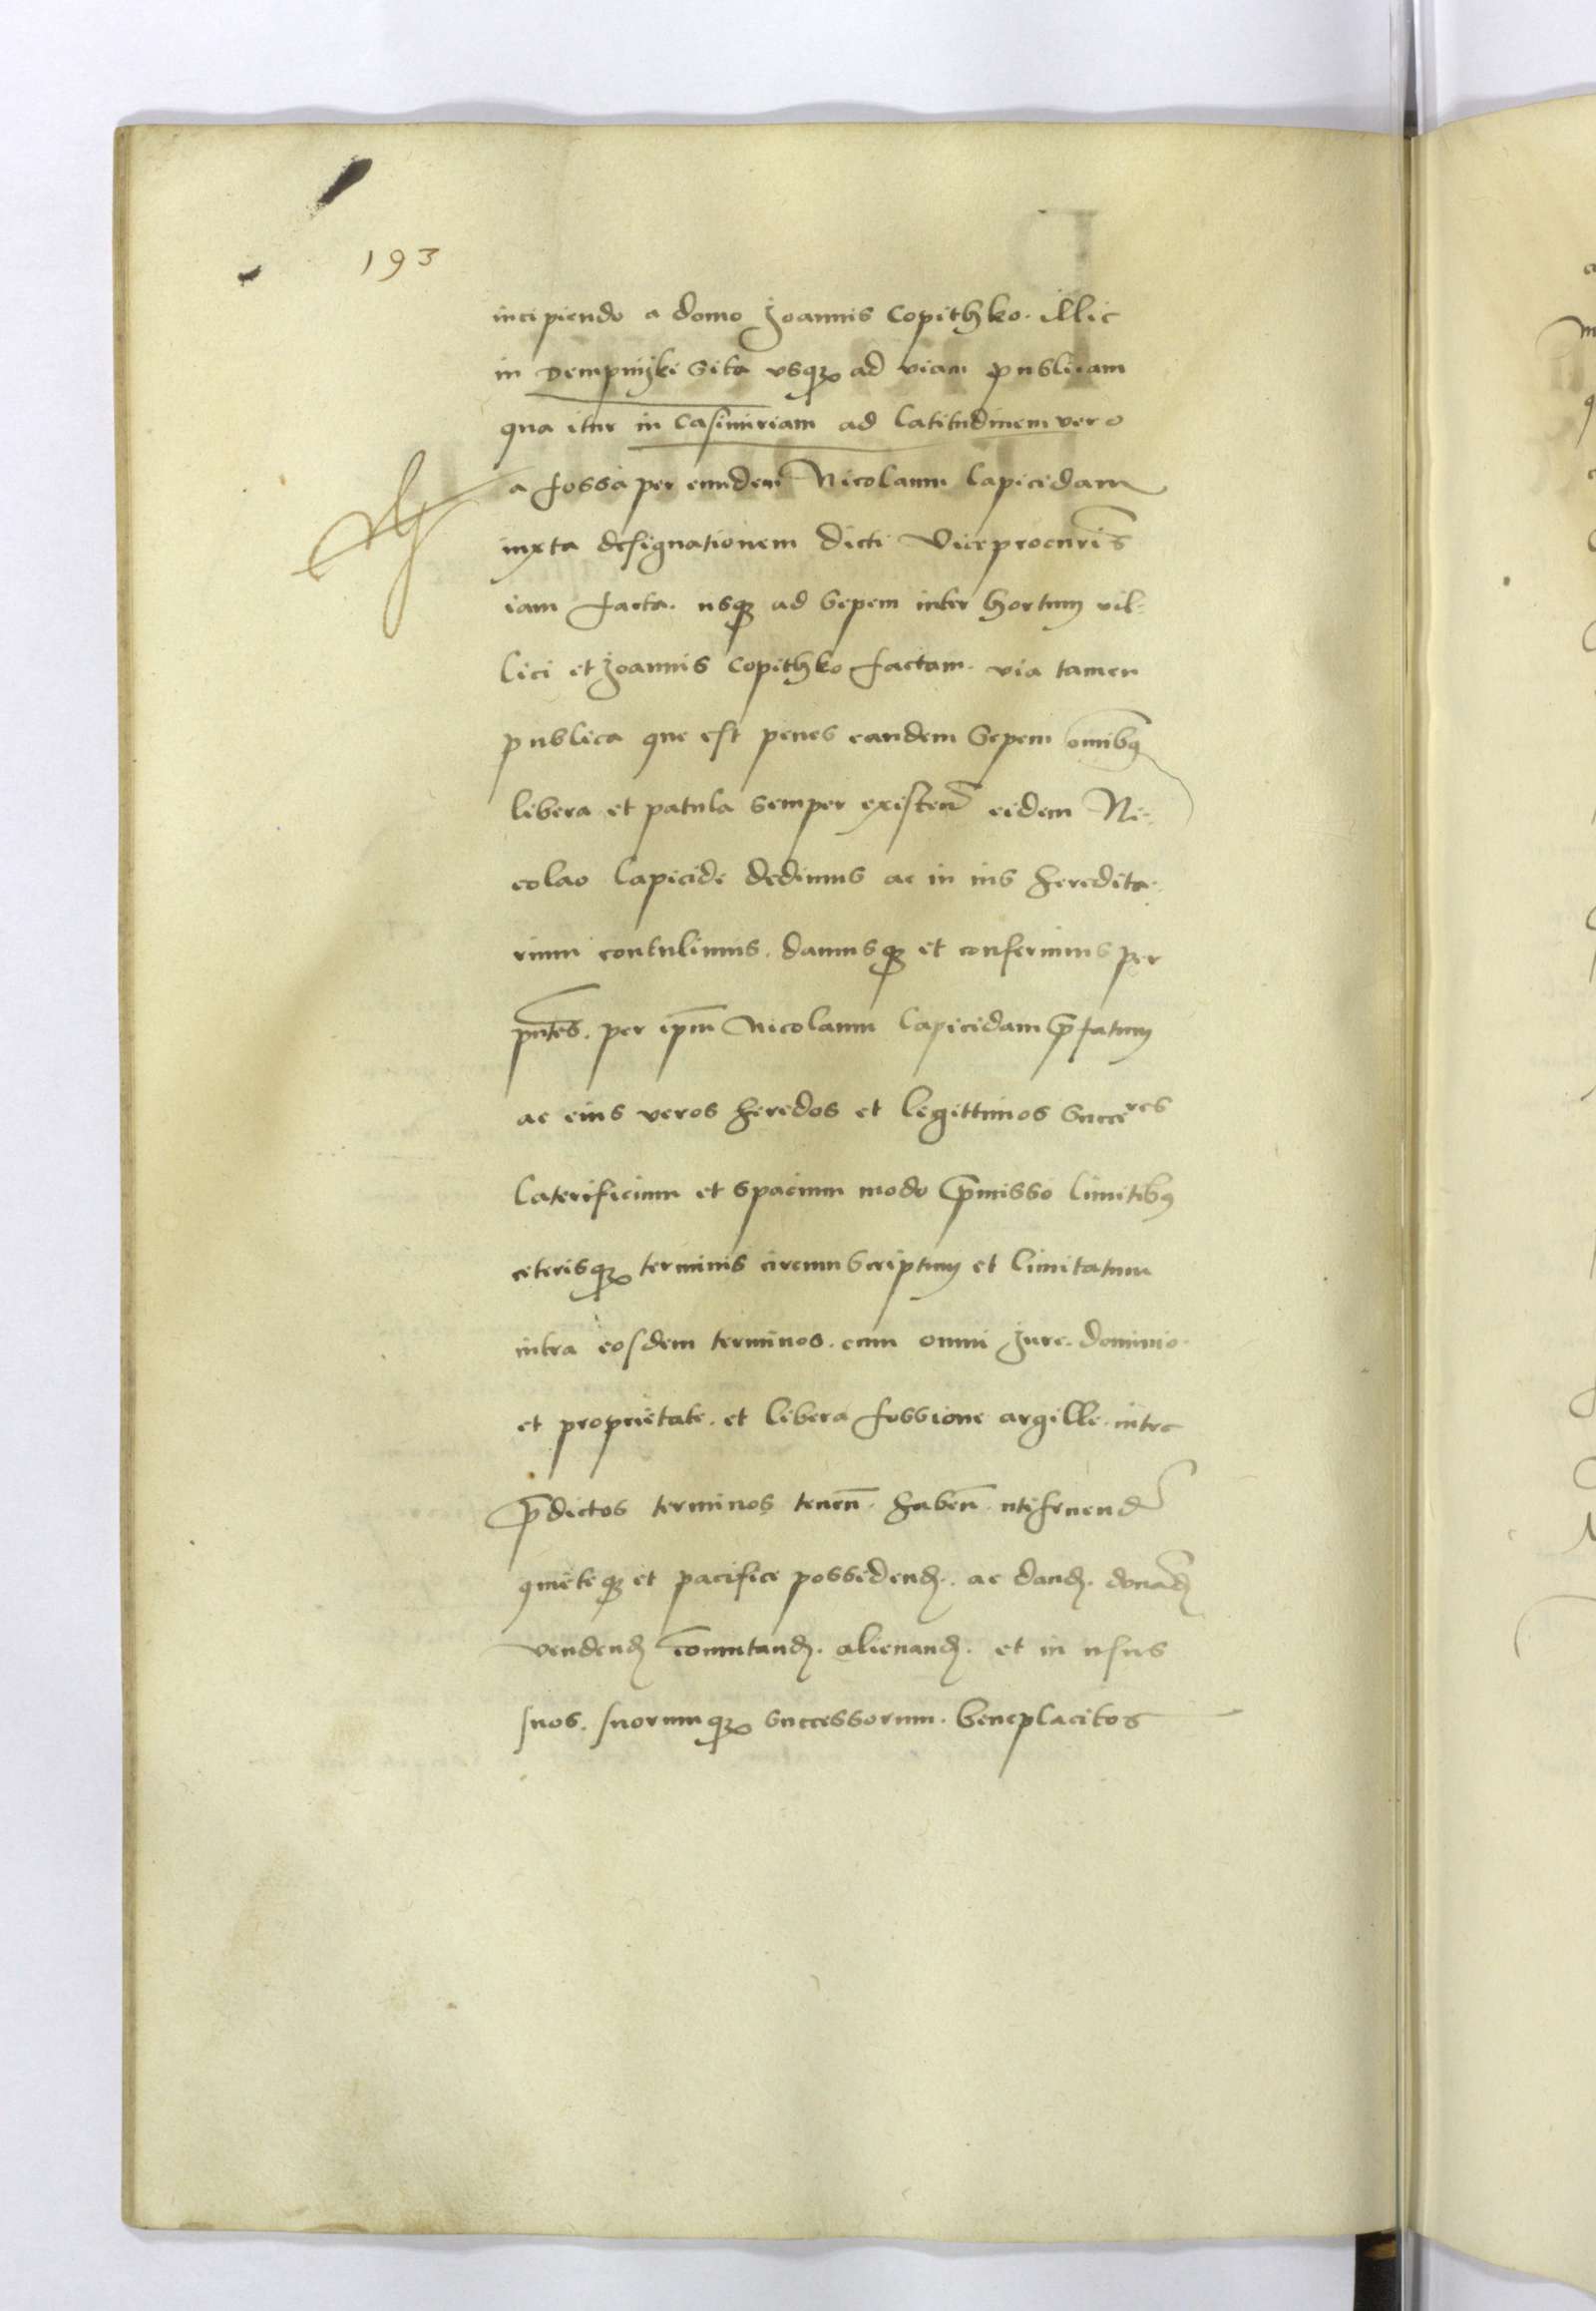 193
incipiendo a domo Joannis Copithko. illic
in Dempnijki sita vsq3 ad viam publicam
qua itur in Casimiriam ad latitudinem vero
a fossa per eundem Nicolaum lapicidam
iuxta designationem dicti Viceprocuris
iam facta. usq3 ad sepem inter hortum vil-
lici et Joannis Copithko factam. via tamen
publica que est penes eandem sepem omnibus
libera et patula semper existen eidem Ni-
colao lapicide dedimus ac in ius heredita-
rium contulimus. damusq3 et conferimus per
pntes. per ipm Nicolaum lapicidam p̄fatum
ac eius veros heredos et legittimos succeres
laterificium et spacium modo p̄misso limitibus
ceterisq3 terminis circumscriptum et limitatum
intra eosdem terminos. cum omni Jure. dominio.
et proprietate. et libera fossione argille. intra
p̄dictos terminos tenen̄. haben̄. utifruend
quieteq3 et pacifice possidend. ac dand. donad
vendend com̄utand. alienand. et in usus
suos. suorumq3 successorum. beneplacitos